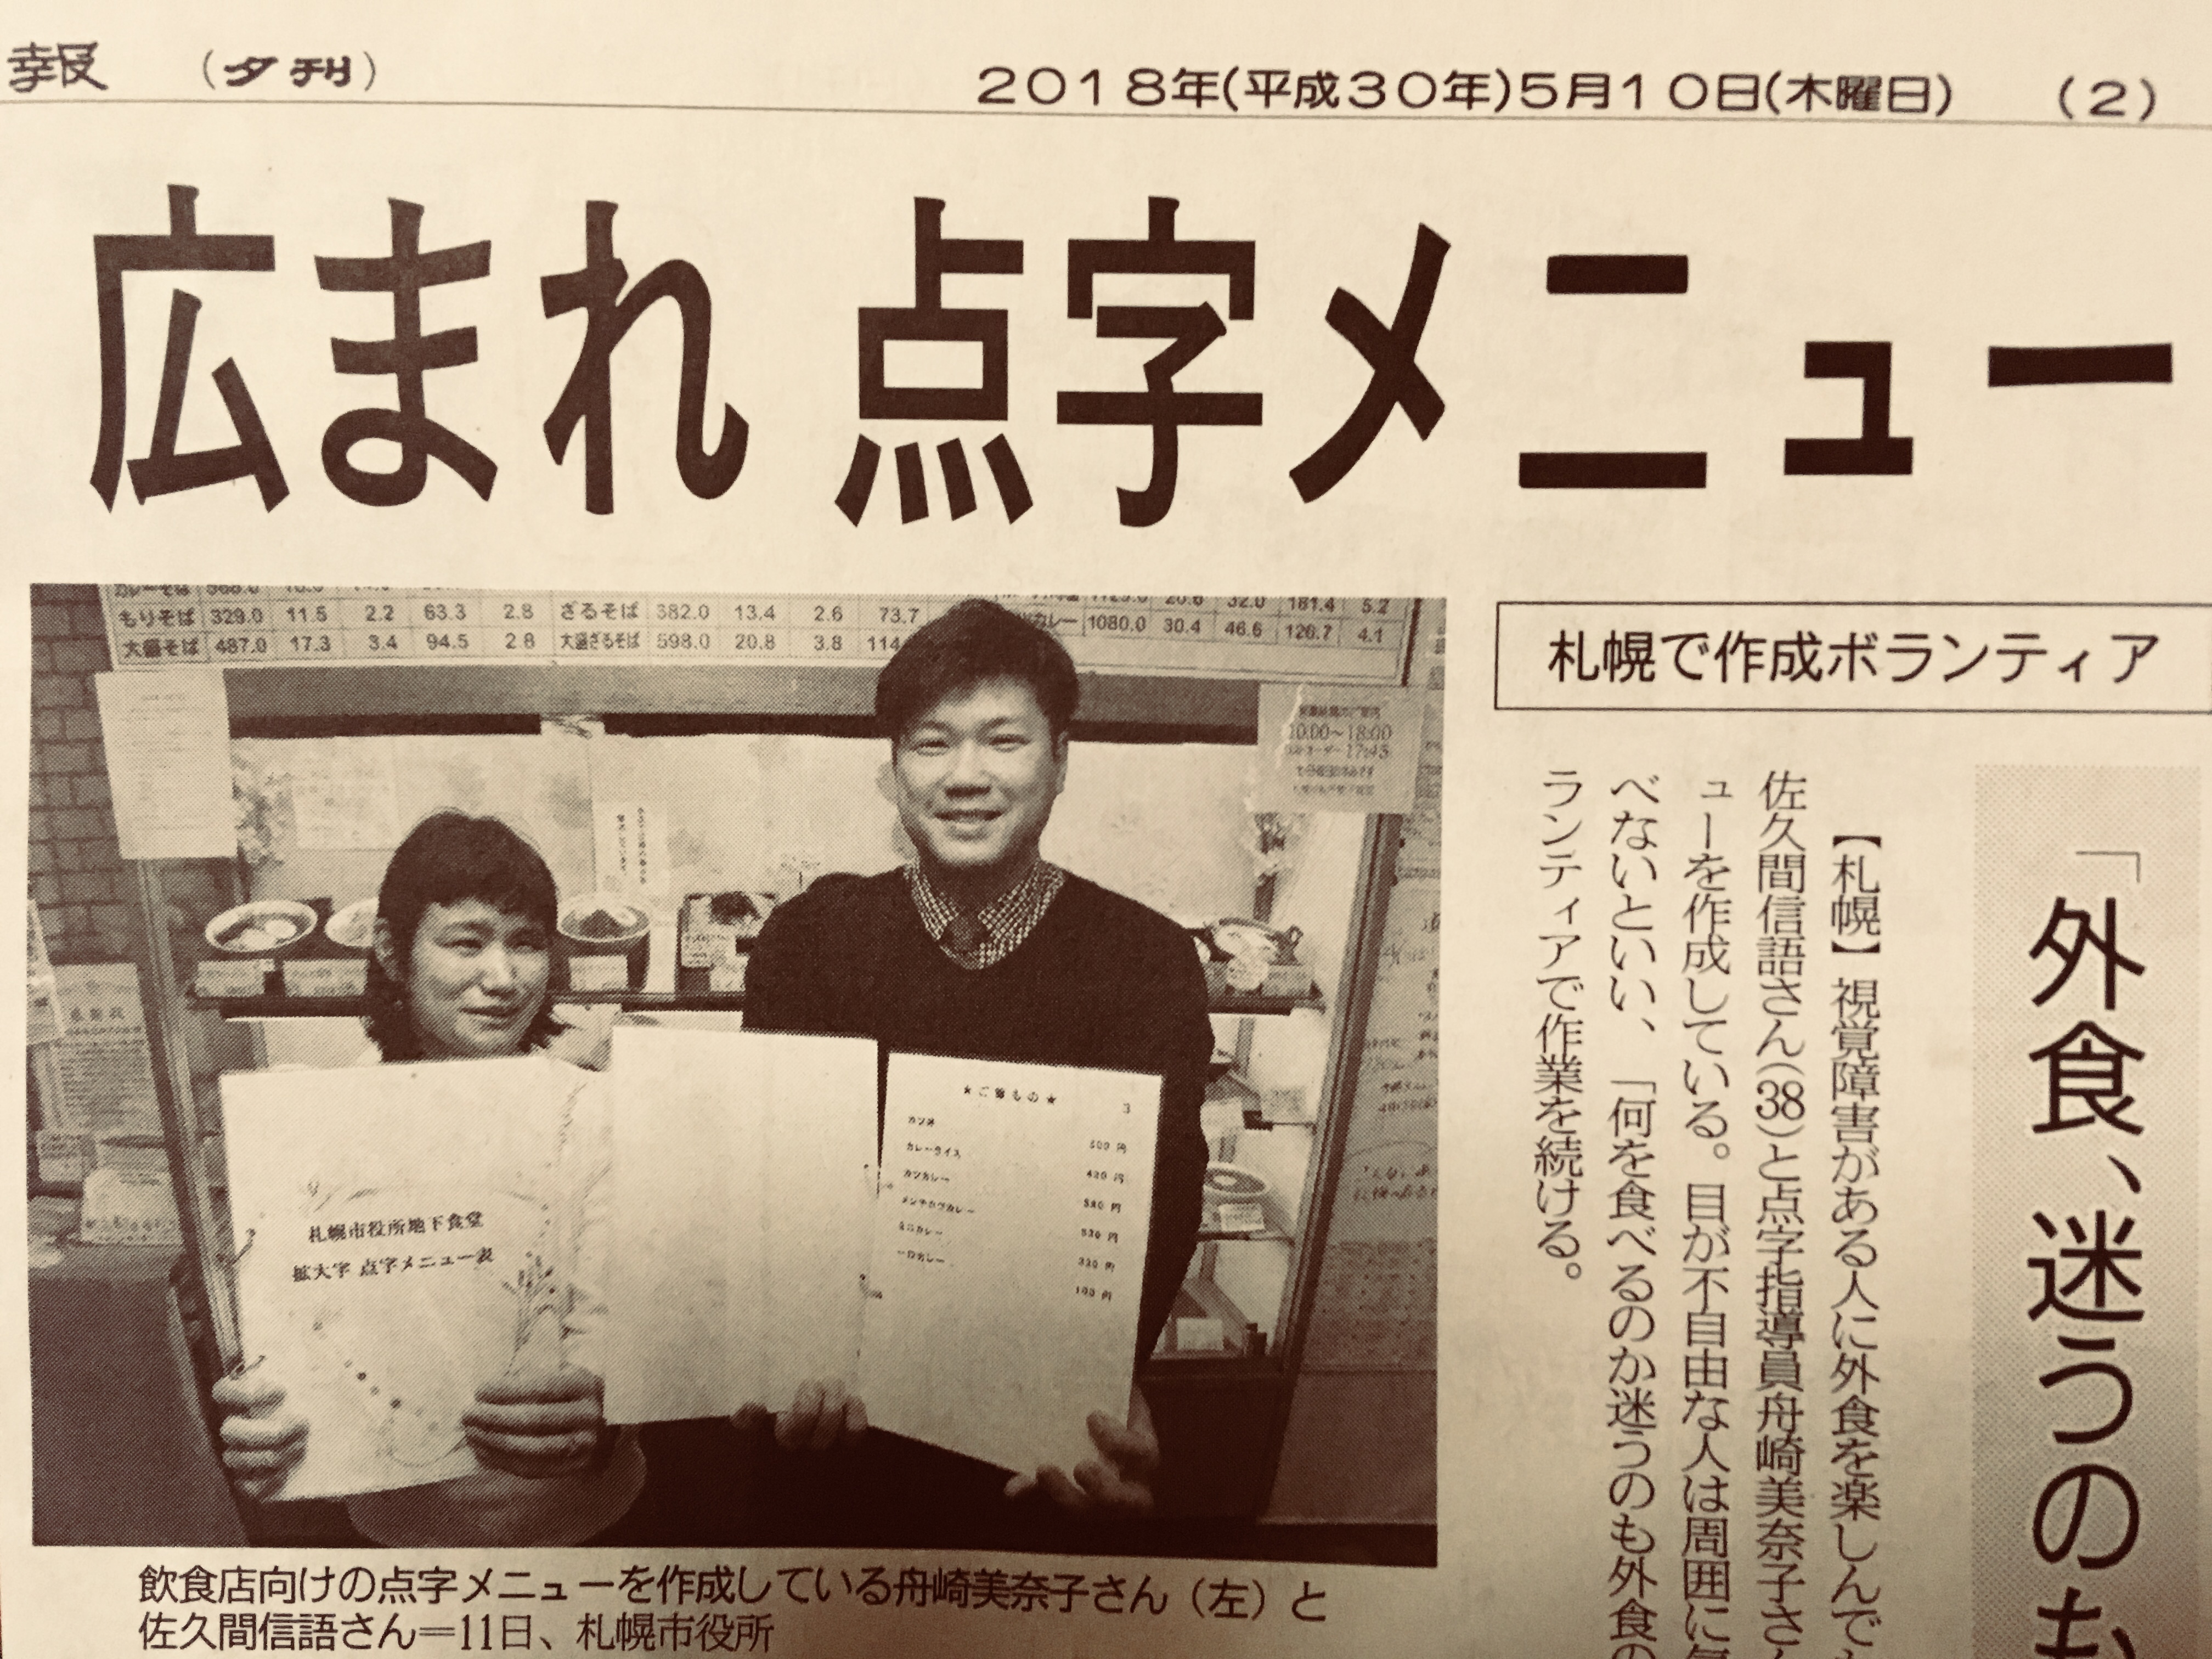 報 （夕刊） 2018年(平成30年)5月10日(木曜日) （2）
広まれ 点字メニュー
札幌で作成ボランティア
「外食、迷うのも
【札幌】視覚障害がある人に外食を楽しんで
佐久間信語さん(38)と点字指導員舟崎美奈子さん
ューを作成している。目が不自由な人は周囲に
べないといい、「何を食べるのか迷うのも外食の
ランティアで作業を続ける。
もりそば 329.0 11.5 2.2 63.3 2.8 ざるそば 382.0 13.4 2.6 73.7
大盛そば 487.0 17.3 3.4 94.5 2.8 大盛ざるそば 598.0 20.8 3.8 114
カレー 1080.0 30.4 46.6 126.7 4.1
10:00～18:00
札幌市役所地下食堂
拡大字 点字メニュー表
★ご飯もの★
3
カツ丼 500円
カレーライス 420円
カツカレー 580円
メンチカツカレー 530円
ミニカレー 330円
一口カレー 100円
飲食店向けの点字メニューを作成している舟崎美奈子さん（左）と
佐久間信語さん＝11日、札幌市役所